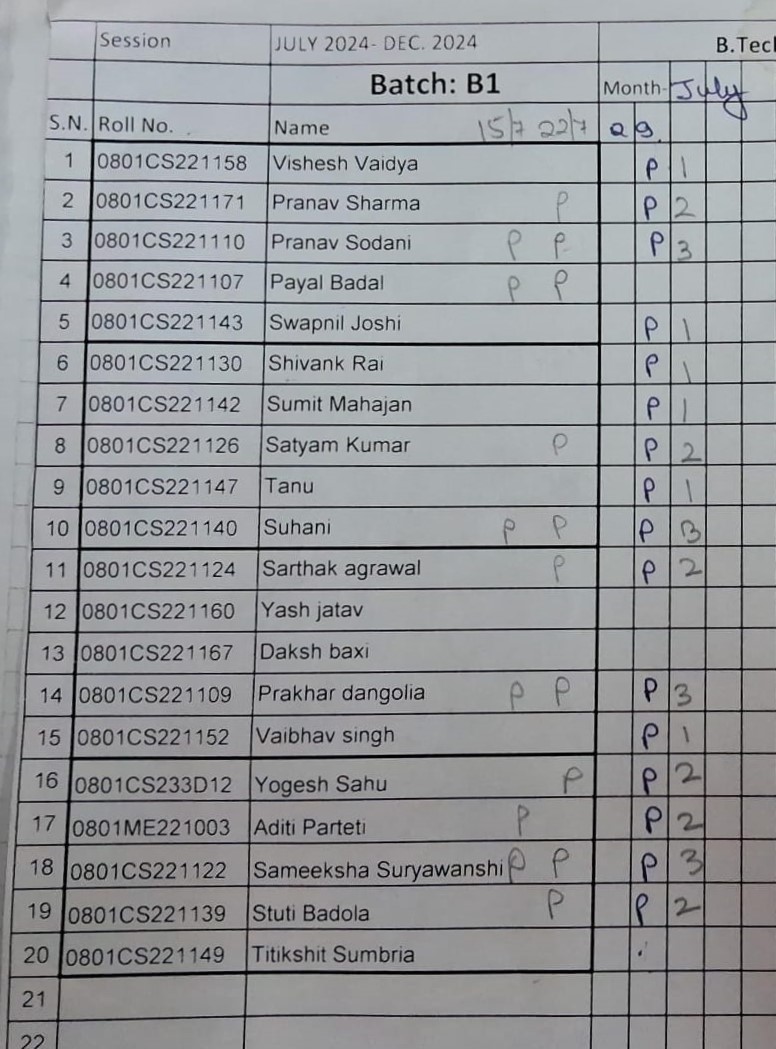 Session JULY 2024- DEC. 2024 B.Tech
Batch: B1 Month- July
S.N. Roll No. Name 15/7 22/7 29
1 0801CS221158 Vishesh Vaidya P 1
2 0801CS221171 Pranav Sharma P P 2
3 0801CS221110 Pranav Sodani P P P 3
4 0801CS221107 Payal Badal P P
5 0801CS221143 Swapnil Joshi P 1
6 0801CS221130 Shivank Rai P 1
7 0801CS221142 Sumit Mahajan P 1
8 0801CS221126 Satyam Kumar P P 2
9 0801CS221147 Tanu P 1
10 0801CS221140 Suhani P P P 3
11 0801CS221124 Sarthak agrawal P P 2
12 0801CS221160 Yash jatav
13 0801CS221167 Daksh baxi
14 0801CS221109 Prakhar dangolia P P P 3
15 0801CS221152 Vaibhav singh P 1
16 0801CS233D12 Yogesh Sahu P P 2
17 0801ME221003 Aditi Parteti P P 2
18 0801CS221122 Sameeksha Suryawanshi P P P 3
19 0801CS221139 Stuti Badola P P 2
20 0801CS221149 Titikshit Sumbria
21
22